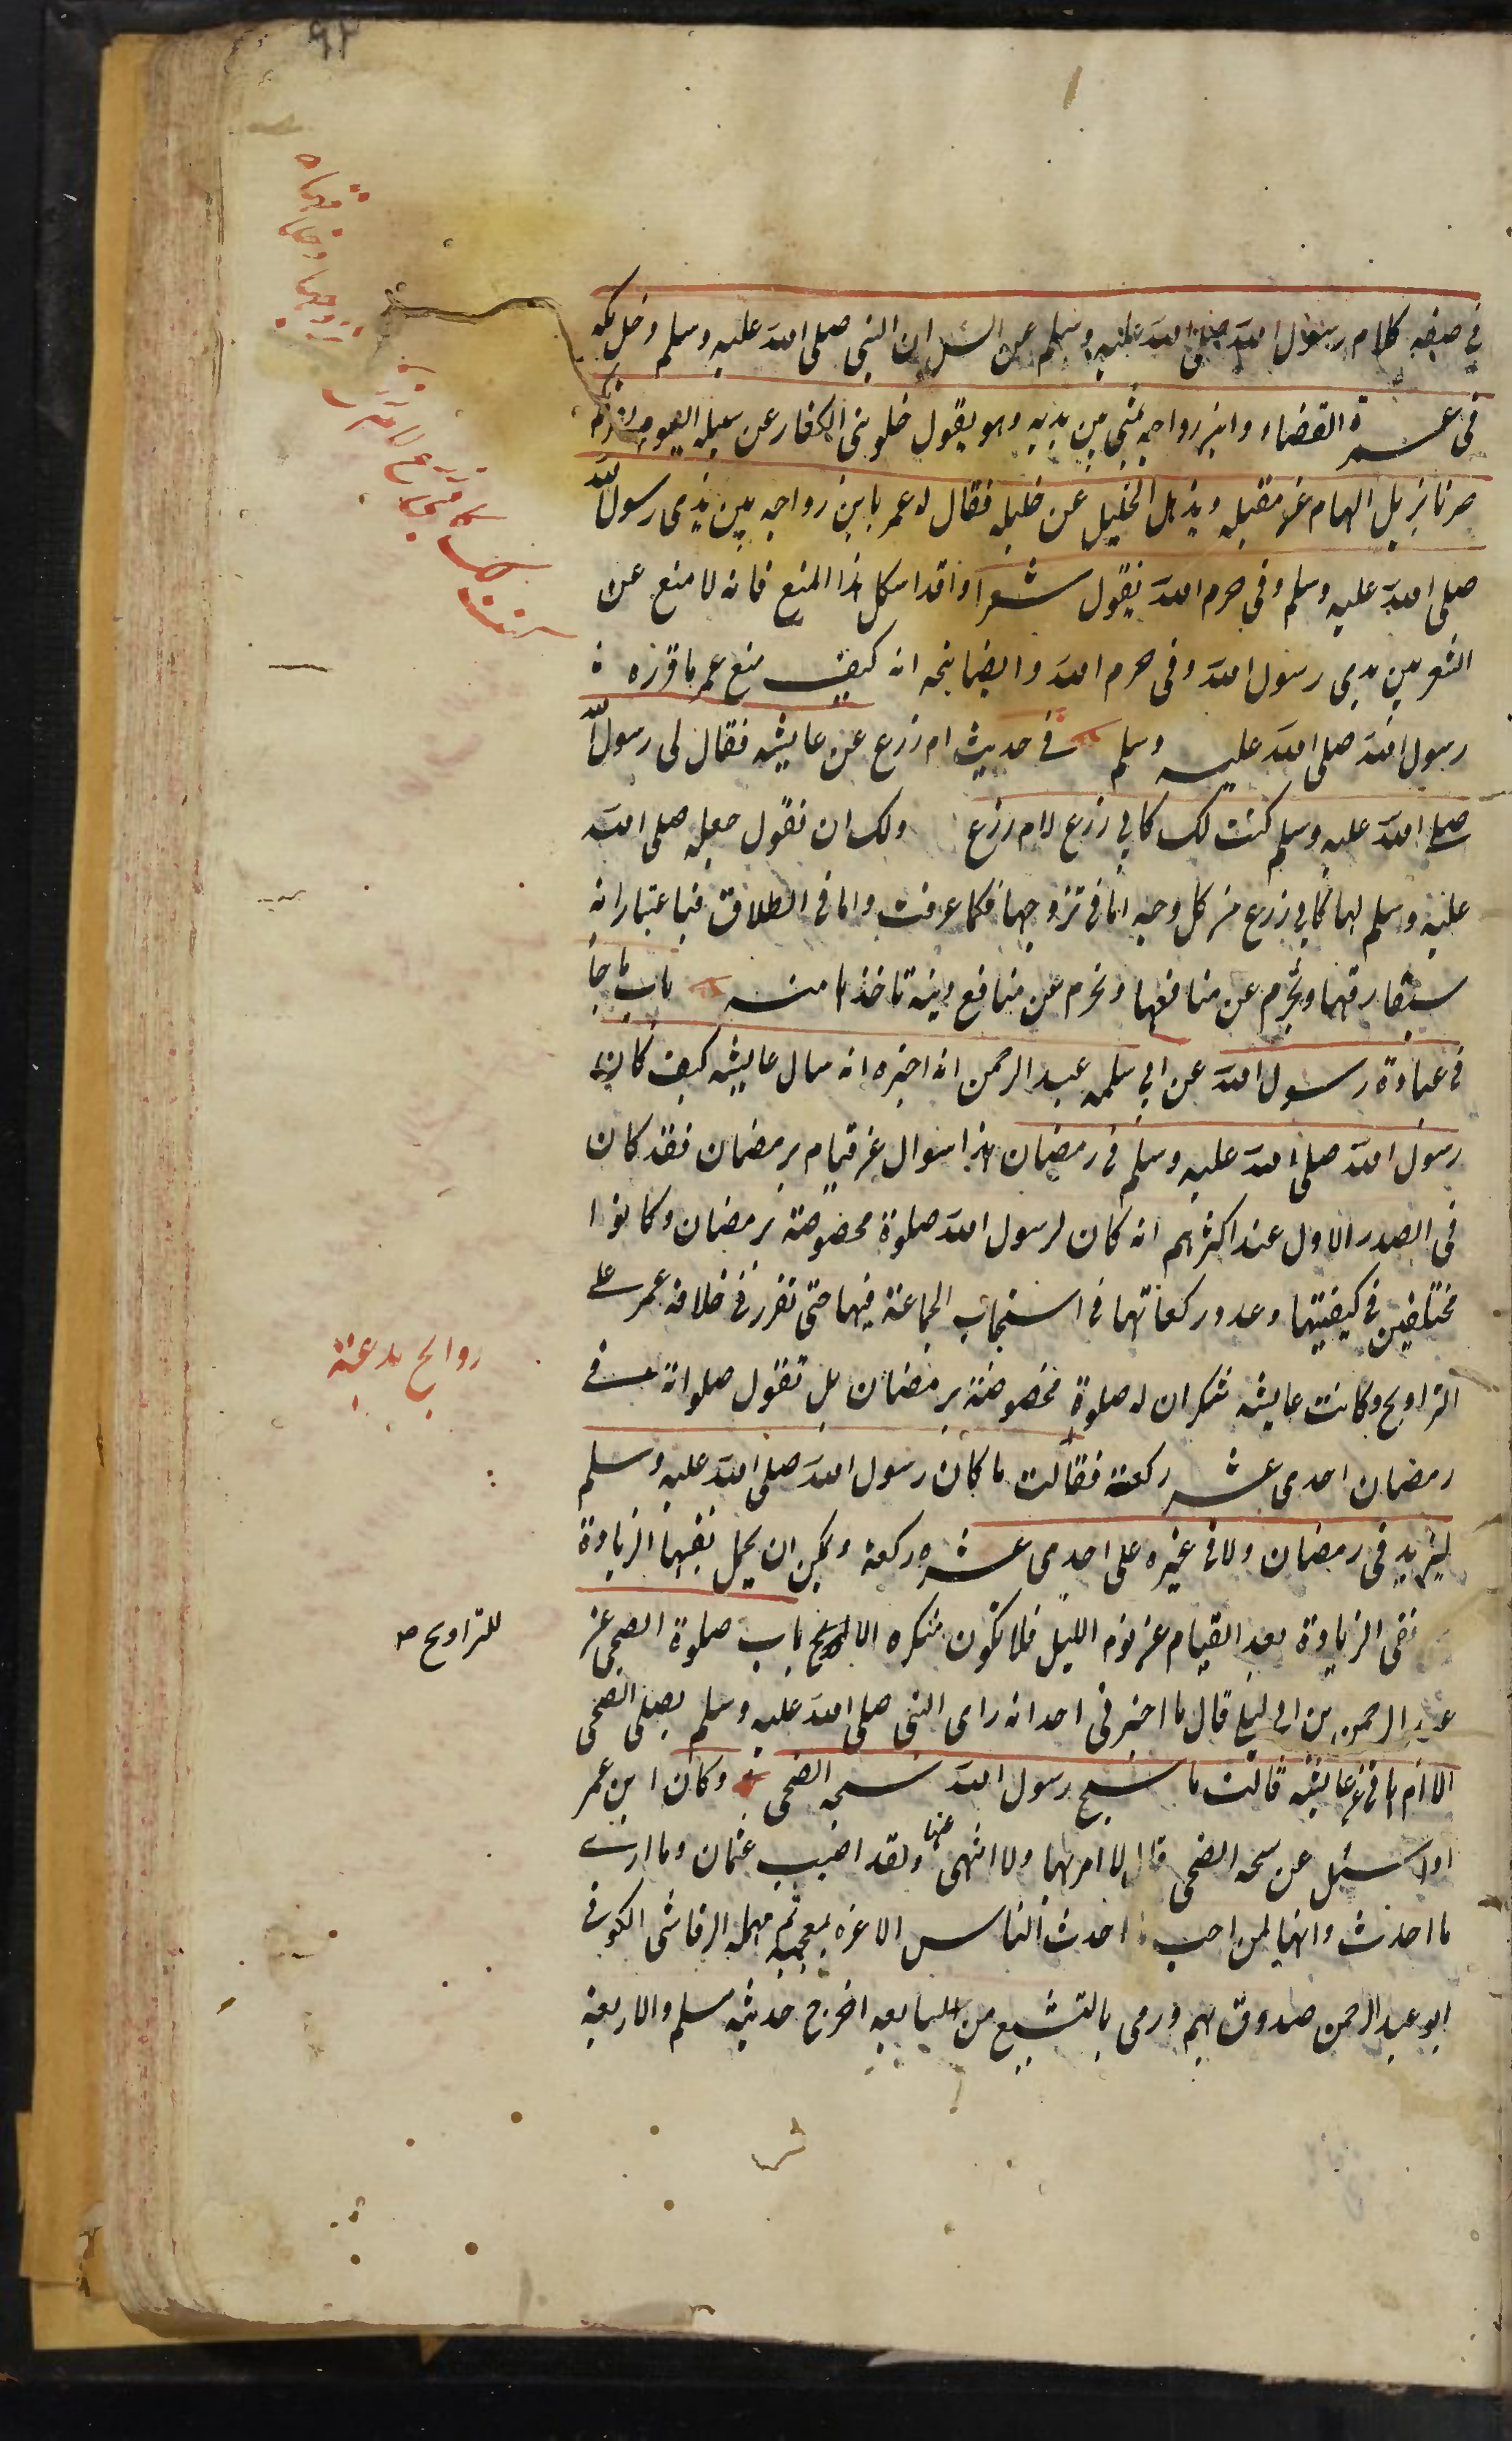 في صيغه كلام رسول الله صلى الله عليه وسلم عن انس ان النبي صلى الله عليه وسلم دخل مكه
في عمرة القضاء وابن رواحه يمشي بين يديه وهو يقول خلو بني الكفار عن سبيله اليوم نضربكم
ضربا يزيل الهام عن مقيله ويذهل الخليل عن خليله فقال له عمر يا بن رواحه بين يدى رسول الله
صلى الله عليه وسلم وفى حرم الله يقول شعرا وقد اشكل هذا المنع فانه لا منع عن
الشعر بين يدى رسول الله وفى حرم الله وايضا انه كيف منع عمر ما قرره
رسول الله صلى الله عليه وسلم في حديث ام زرع عن عايشه فقال لى رسول الله
صلى الله عليه وسلم كنت لك كابي زرع لام زرع ولك ان تقول جعله صلى الله
عليه وسلم لها كابي زرع من كل وجه اما في تزوجها فكما عرفت واما في الطلاق فباعتبار انه
سيفارقها ويحرم عن منافعها وتحرم عن منافع دينية تاخذها منه باب ما جا
في عبادة رسول الله عن ابي سلمه عبد الرحمن انه اخبره انه سال عايشه كيف كان
رسول الله صلى الله عليه وسلم في رمضان هذا سوال عن قيام رمضان فقد كان
في الصدر الاول عند اكثرهم انه كان لرسول الله صلوة مخصوصة برمضان وكانوا
مختلفين في كيفيتها وعدد ركعاتها في استحباب الجماعة فيها حتى تقرر في خلافة عمر على
التراويح وكانت عايشه تنكر ان له صلوة مخصوصة برمضان بل تقول صلواته في
رمضان احدى عشر ركعة فقالت ما كان رسول الله صلى الله عليه وسلم
ليزيد في رمضان ولا في غيره على احدى عشره ركعة ويمكن ان يحمل نفيها الزيادة
نفى الزيادة بعد القيام عن نوم الليل فلا تكون منكره باب صلوة الضحى عن
عبد الرحمن بن ابي ليلى قال ما اخبرني احد انه راى النبى صلى الله عليه وسلم يصلى الضحى
الا ام هاني عن عايشه قالت ما سبح رسول الله سبحه الضحى وكان ابن عمر
اذا سئل عن سبحه الضحى قال لا امر بها ولا انهى عنها ولقد اصيب عثمان وما ارى
ما احدث وانها لمن احب احدث الناس الاغره بمعجمه ثم مهمله الرقاشى الكوفى
ابو عبد الرحمن صدوق يهم ورمى بالتشيع من السابعه اخرج حديثه مسلم والاربعة
كنت لك كابي زرع لام زرع
للتراويح صح